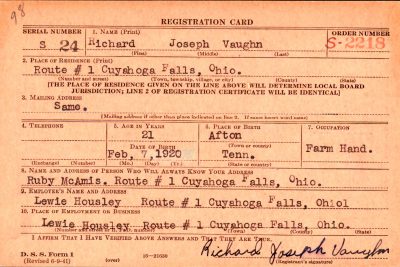 98
REGISTRATION CARD
SERIAL NUMBER 1. NAME (Print) ORDER NUMBER
S 24 Richard Joseph Vaughn S-2218
(First) (Middle) (Last)
2. PLACE OF RESIDENCE (Print)
Route # 1 Cuyahoga Falls, Ohio.
(Number and street) (Town, township, village, or city) (County) (State)
[THE PLACE OF RESIDENCE GIVEN ON THE LINE ABOVE WILL DETERMINE LOCAL BOARD
JURISDICTION; LINE 2 OF REGISTRATION CERTIFICATE WILL BE IDENTICAL]
3. MAILING ADDRESS
Same.
[Mailing address if other than place indicated on line 2. If same insert word same]
4. TELEPHONE 5. AGE IN YEARS 6. PLACE OF BIRTH 7. OCCUPATION
21 Afton
DATE OF BIRTH (Town or county) Farm Hand.
Feb, 7,1920 Tenn.
(Exchange) (Number) (Mo.) (Day) (Yr.) (State or country)
8. NAME AND ADDRESS OF PERSON WHO WILL ALWAYS KNOW YOUR ADDRESS
Ruby McAmis. Route # 1 Cuyahoga Falls, Ohio.
9. EMPLOYER'S NAME AND ADDRESS
Lewie Housley Route # 1 Cuyahoga Falls, Ohiol
10. PLACE OF EMPLOYMENT OR BUSINESS
Lewie Housley Route # 1 Cuyahoga Falls, Ohio.
(Town) (County) (State)
I AFFIRM THAT I HAVE VERIFIED ABOVE ANSWERS AND THAT THEY ARE TRUE.
D. S. S. Form 1
(Revised 6-9-41) 16-21630 Richard Joseph Vaughn
(Registrant's signature)